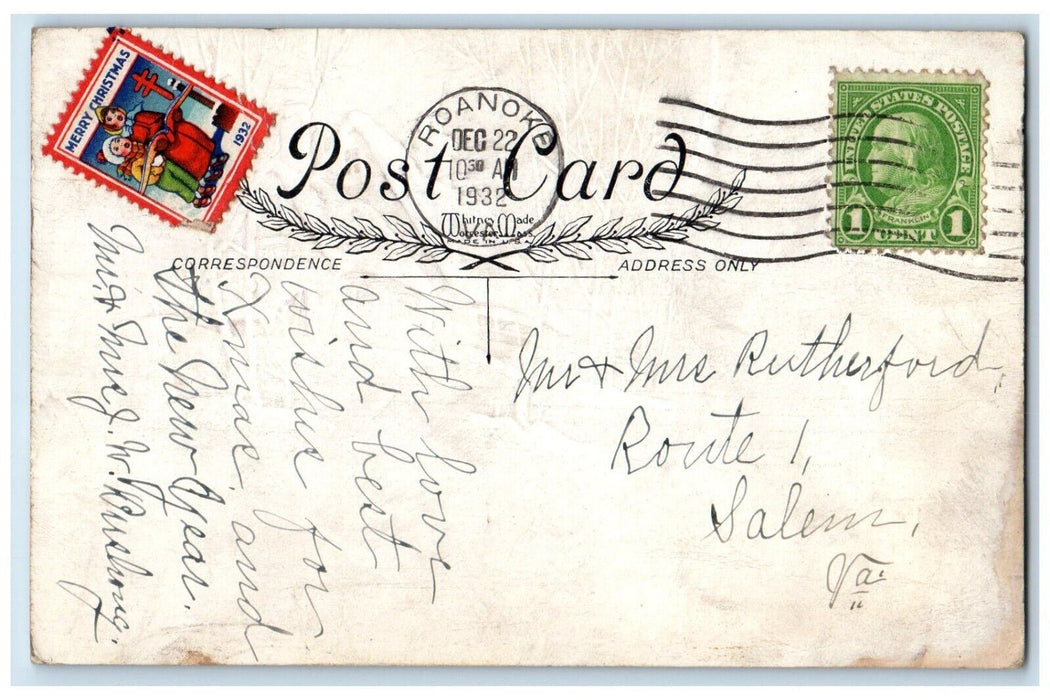 MERRY CHRISTMAS
1932
ROANOKE
DEC 22
10 30 AM
1932
UNITED STATES POSTAGE
FRANKLIN
1 CENT 1
Post Card
Whitney Made
Worcester, Mass
MADE IN U.S.A.
CORRESPONDENCE
ADDRESS ONLY
With love
and best
wishes for
Xmas, and
the New Year.
Mr & Mrs J. W.
Mr & Mrs Rutherford,
Route 1,
Salem,
Va.